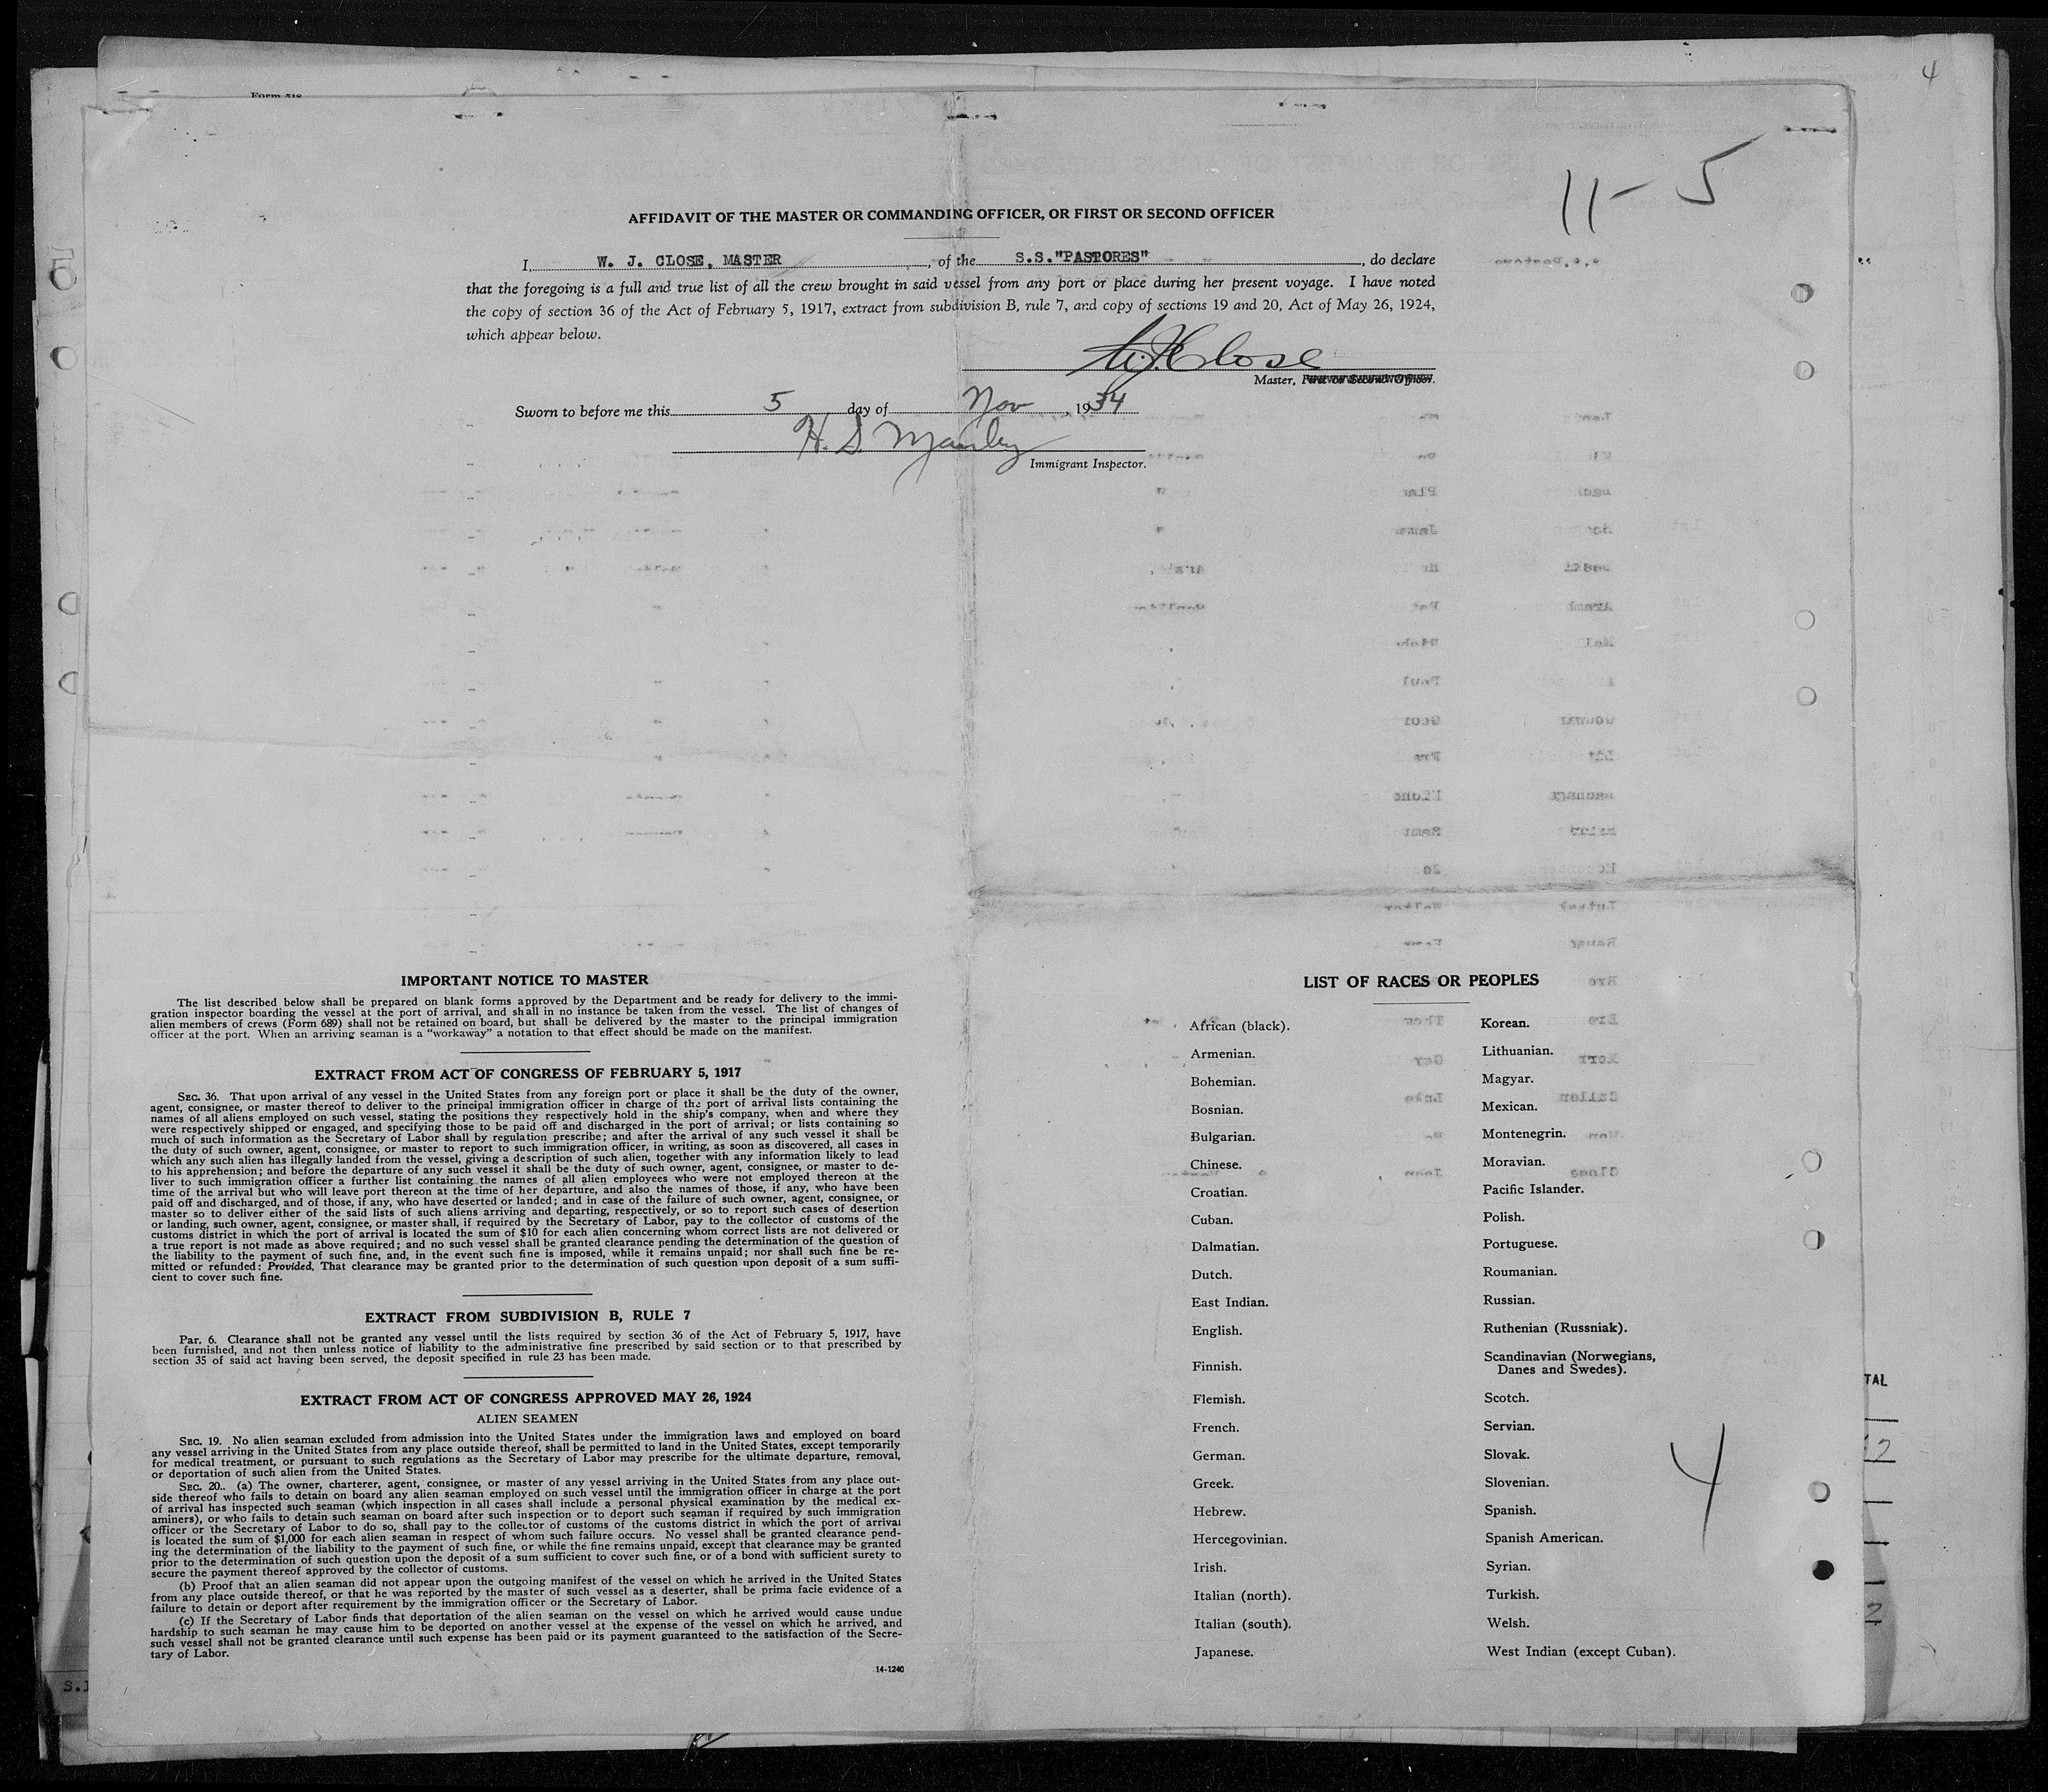 4
11-5
AFFIDAVIT OF THE MASTER OR COMMANDING OFFICER, OR FIRST OR SECOND OFFICER
I, W. J. CLOSE, MASTER, of the S.S."PASTORES", do declare
that the foregoing is a full and true list of all the crew brought in said vessel from any port or place during her present voyage. I have noted
the copy of section 36 of the Act of February 5, 1917, extract from subdivision B, rule 7, and copy of sections 19 and 20, Act of May 26, 1924,
which appear below.
W.J. Close
Master, First or Second Officer.
Sworn to before me this 5 day of Nov, 1934
H. S. Manley
Immigrant Inspector.
IMPORTANT NOTICE TO MASTER
The list described below shall be prepared on blank forms approved by the Department and be ready for delivery to the immi-
gration inspector boarding the vessel at the port of arrival, and shall in no instance be taken from the vessel. The list of changes of
alien members of crews (Form 689) shall not be retained on board, but shall be delivered by the master to the principal immigration
officer at the port. When an arriving seaman is a "workaway" a notation to that effect should be made on the manifest.
EXTRACT FROM ACT OF CONGRESS OF FEBRUARY 5, 1917
SEC. 36. That upon arrival of any vessel in the United States from any foreign port or place it shall be the duty of the owner,
agent, consignee, or master thereof to deliver to the principal immigration officer in charge of the port of arrival lists containing the
names of all aliens employed on such vessel, stating the positions they respectively hold in the ship's company, when and where they
were respectively shipped or engaged, and specifying those to be paid off and discharged in the port of arrival; or lists containing so
much of such information as the Secretary of Labor shall by regulation prescribe; and after the arrival of any such vessel it shall be
the duty of such owner, agent, consignee, or master to report to such immigration officer, in writing, as soon as discovered, all cases in
which any such alien has illegally landed from the vessel, giving a description of such alien, together with any information likely to lead
to his apprehension; and before the departure of any such vessel it shall be the duty of such owner, agent, consignee, or master to de-
liver to such immigration officer a further list containing the names of all alien employees who were not employed thereon at the
time of the arrival but who will leave port thereon at the time of her departure, and also the names of those, if any, who have been
paid off and discharged, and of those, if any, who have deserted or landed; and in case of the failure of such owner, agent, consignee, or
master so to deliver either of the said lists of such aliens arriving and departing, respectively, or so to report such cases of desertion
or landing, such owner, agent, consignee, or master shall, if required by the Secretary of Labor, pay to the collector of customs of the
customs district in which the port of arrival is located the sum of $10 for each alien concerning whom correct lists are not delivered or
a true report is not made as above required; and no such vessel shall be granted clearance pending the determination of the question of
the liability to the payment of such fine, and, in the event such fine is imposed, while it remains unpaid; nor shall such fine be re-
mitted or refunded: Provided, That clearance may be granted prior to the determination of such question upon deposit of a sum suffi-
cient to cover such fine.
EXTRACT FROM SUBDIVISION B, RULE 7
Par. 6. Clearance shall not be granted any vessel until the lists required by section 36 of the Act of February 5, 1917, have
been furnished, and not then unless notice of liability to the administrative fine prescribed by said section or to that prescribed by
section 35 of said act having been served, the deposit specified in rule 23 has been made.
EXTRACT FROM ACT OF CONGRESS APPROVED MAY 26, 1924
ALIEN SEAMEN
SEC. 19. No alien seaman excluded from admission into the United States under the immigration laws and employed on board
any vessel arriving in the United States from any place outside thereof, shall be permitted to land in the United States, except temporarily
for medical treatment, or pursuant to such regulations as the Secretary of Labor may prescribe for the ultimate departure, removal,
or deportation of such alien from the United States.
SEC. 20.. (a) The owner, charterer, agent, consignee, or master of any vessel arriving in the United States from any place out-
side thereof who fails to detain on board any alien seaman employed on such vessel until the immigration officer in charge at the port
of arrival has inspected such seaman (which inspection in all cases shall include a personal physical examination by the medical ex-
aminers), or who fails to detain such seaman on board after such inspection or to deport such seaman if required by such immigration
officer or the Secretary of Labor to do so, shall pay to the collector of customs of the customs district in which the port of arrival
is located the sum of $1,000 for each alien seaman in respect of whom such failure occurs. No vessel shall be granted clearance pend-
ing the determination of the liability to the payment of such fine, or while the fine remains unpaid, except that clearance may be granted
prior to the determination of such question upon the deposit of a sum sufficient to cover such fine, or of a bond with sufficient surety to
secure the payment thereof approved by the collector of customs.
(b) Proof that an alien seaman did not appear upon the outgoing manifest of the vessel on which he arrived in the United States
from any place outside thereof, or that he was reported by the master of such vessel as a deserter, shall be prima facie evidence of a
failure to detain or deport after requirement by the immigration officer or the Secretary of Labor.
(c) If the Secretary of Labor finds that deportation of the alien seaman on the vessel on which he arrived would cause undue
hardship to such seaman he may cause him to be deported on another vessel at the expense of the vessel on which he arrived, and
such vessel shall not be granted clearance until such expense has been paid or its payment guaranteed to the satisfaction of the Secre-
tary of Labor.
14-1240
LIST OF RACES OR PEOPLES
African (black).
Armenian.
Bohemian.
Bosnian.
Bulgarian.
Chinese.
Croatian.
Cuban.
Dalmatian.
Dutch.
East Indian.
English.
Finnish.
Flemish.
French.
German.
Greek.
Hebrew.
Hercegovinian.
Irish.
Italian (north).
Italian (south).
Japanese.
Korean.
Lithuanian.
Magyar.
Mexican.
Montenegrin.
Moravian.
Pacific Islander.
Polish.
Portuguese.
Roumanian.
Russian.
Ruthenian (Russniak).
Scandinavian (Norwegians,
Danes and Swedes).
Scotch.
Servian.
Slovak.
Slovenian.
Spanish.
Spanish American.
Syrian.
Turkish.
Welsh.
West Indian (except Cuban).
4